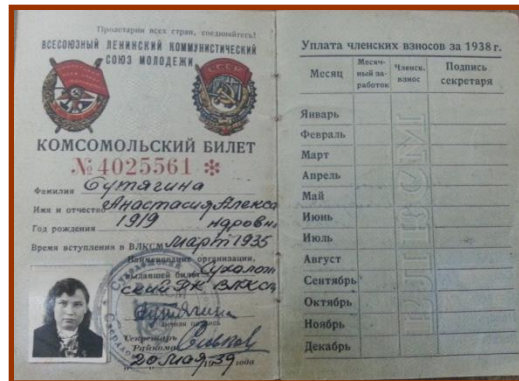 Пролетарии всех стран, соединяйтесь!
ВСЕСОЮЗНЫЙ ЛЕНИНСКИЙ КОММУНИСТИЧЕСКИЙ
СОЮЗ МОЛОДЕЖИ
КОМСОМОЛЬСКИЙ БИЛЕТ
№ 4025561 *
Фамилия Бутягина
Имя и отчество Анастасия Алекса
ндровна
Год рождения 1919
Время вступления в ВЛКСМ Март 1935
Наименование организации,
выдавшей билет Сухолож
ский РК ВЛКСМ
Бутягина
Личная подпись
Секретарь
Райкома
20 Мая 1939 года
Уплата членских взносов за 1938 г.
Месяц
Месяч-
ный за-
работок
Членск.
взнос
Подпись
секретаря
Январь
Февраль
Март
Апрель
Май
Июнь
Июль
Август
Сентябрь
Октябрь
Ноябрь
Декабрь